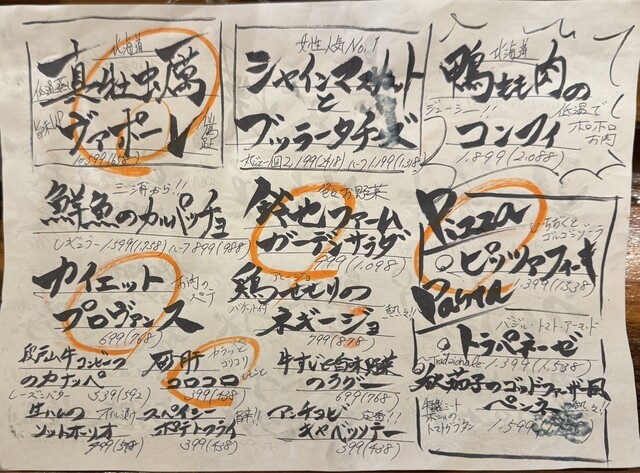 北海道
真牡蠣
ヴァポーレ
低温蒸
旨味UP
599(658)
女性人気No.1
シャインマスカット
と
ブッラータチーズ
2,199(2418) ハーフ1,199(1,318)
北海道
鴨もも肉の
コンフィ
ジューシー!!
低温で
ホロホロ
お肉
1.899(2.088)
三浦から!!
鮮魚のカルパッチョ
レギュラー1599(1758) ハーフ899(988)
鈴也ファーム
ガーデンサラダ
999(1.098)
Pizza
いちぢくと
ゴルゴンゾーラ
ピッツァフィーキ
1.399(1.538)
カイエット
プロヴァンス
お肉の
パテ
699(768)
鶏つくもりの
ネギージョ
バケット付
熱々!!
799(878)
Pasta
バジル・トマト・アーモンド
トラパネーゼ
Tradizionale
1.399(1.538)
段戸山牛コンビーフ
のカナッペ
レーズンバター
539(592)
砂肝
コロコロ
カラッと
コリコリ
399(438)
牛すじと旨味野菜
のラグー
699(768)
秋茄子のゴッドファーザー風
ペンネ
熱々!!
1.599
生ハムの
ソットホーリオ
499(548)
スペイシー
ポテトフライ
399(438)
アンチョビ
キャベッツテー
定番!!
399(438)